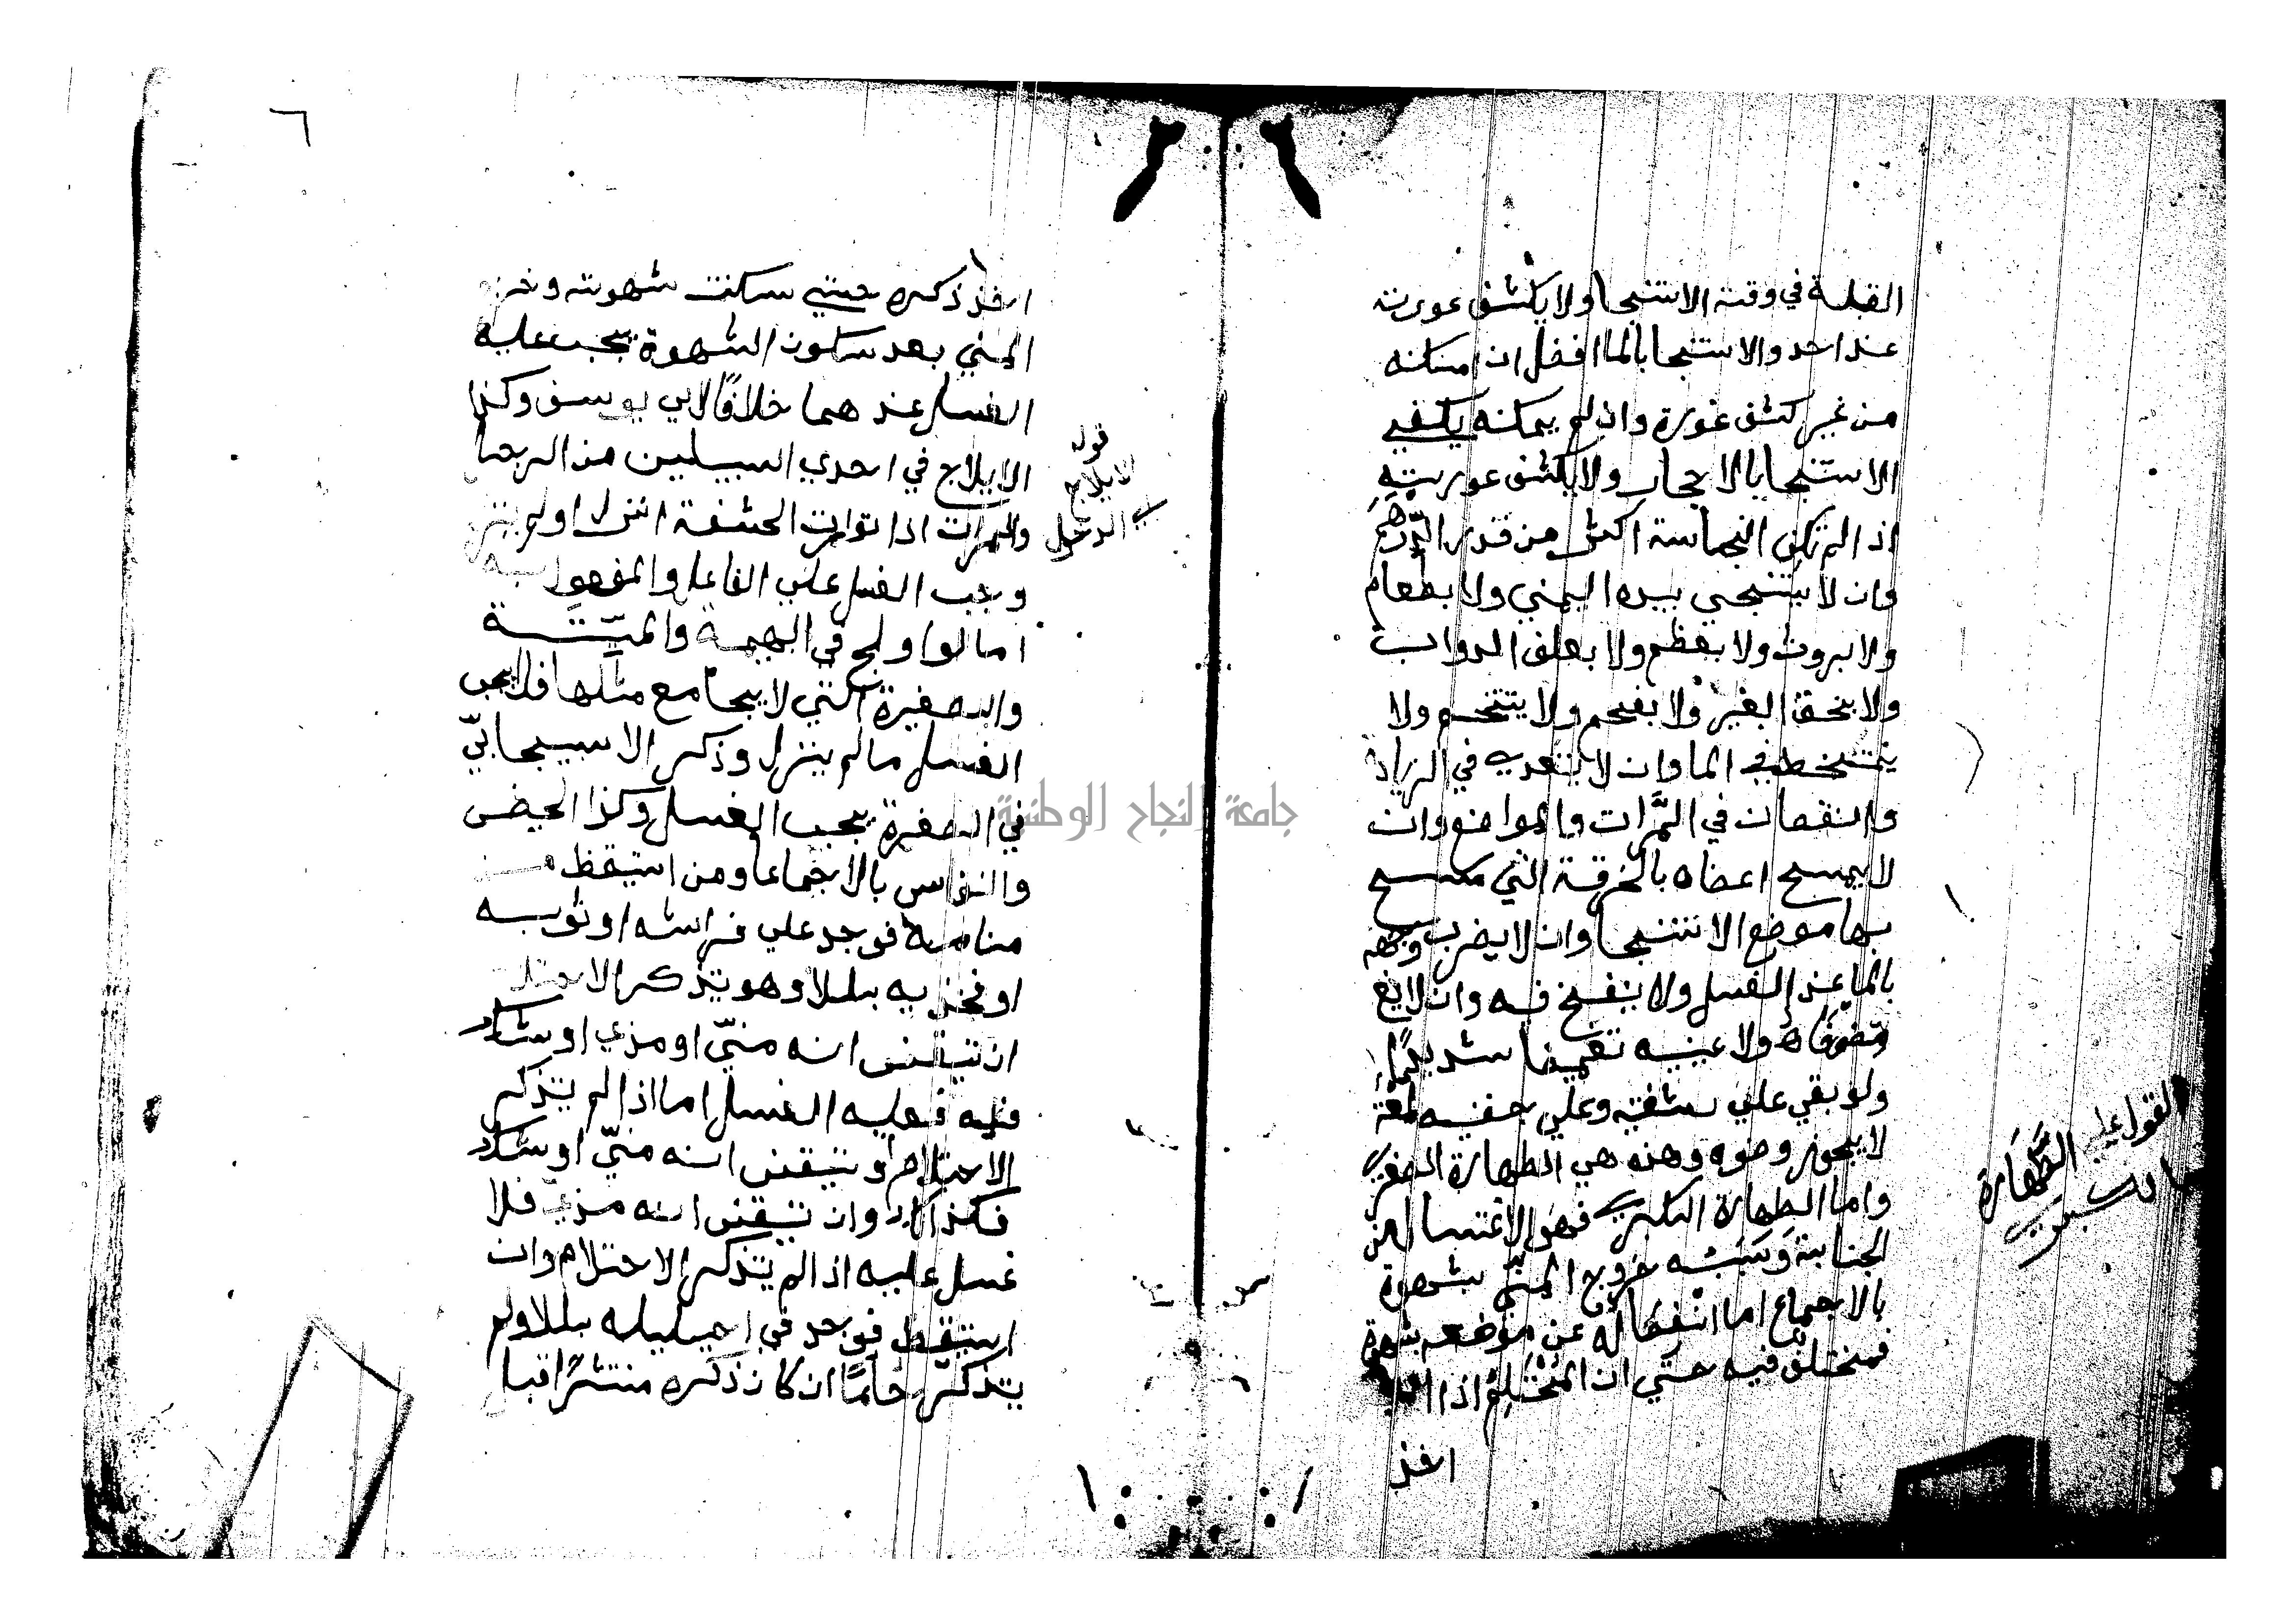 القبلة في وقت الاستنجا ولا يكشف عورته
عند احد والاستنجا بالما افضل ان امكنه
من غير كشف عورة وان لم يمكنه يكفي
الاستنجا بالاحجار ولا يكشف عورته
اذا لم تكن النجاسة اكثر من قدر الدّرهم
وان لا يستنجي بيده اليمني ولا بطعام
ولا بروث ولا بعظم ولا بعلف الدواب
ولا بحق الغير ولا بفحم ولا يتنخم ولا
يمتخط في الما وان لا يتعدي في الزيادة
والنقصان في المرّات والمواضع وان
لا يمسح اعضاه بالخرقة التي مسح
بها موضع الاستنجا وان لا يضرب وجهه
بالما عند الغسل ولا ينفخ فيه وان لا يغ
مض فاه ولا عينيه تغميضا شديدًا
ولو بقي علي شفته وعلي جفنه لمعة
لا يجوز وضوه وهذه هي الطهارة الصغري
واما الطهارة الكبري فهو الاغتسال من
الجنابة وسببه خروج المني بشهوة
بالاجماع اما انفصاله عن موضعه بشهوة
فمختلف فيه حتي ان المحتلم اذا
اخذ
القول علي
الطهارة
الكبري
اخذ ذكره حتي سكنت شهوته وخرج
المني بعد سكون الشهوة يجب عليه
الغسل عندهما خلافًا لابي يوسف وكذا
الايلاج في احدي السبيلين من الرجل
والمرات اذا توارت الحشفة انزل اولم ينزل
وجب الغسل علي الفاعل والمفعول به
اما لو اولج في البهيمة والميّتة
والصغيرة التي لا يجامع مثلها فلا يجب
الغسل ما لم ينزل وذكر الاسبيجابيّ
في الصغيرة يجب الغسل وكذا الحيض
والنفاس بالاجماعا ومن استيقظ من
منامه فوجد علي فراشه او ثوبه
او فخذيه بللا وهو يتذكر الاحتلام
ان تيقنن انه منيّ او مذي او شك
فيه فعليه الغسل اما اذا لم يتذكر
الاحتلام وتيقنن انه منيّ او شك
فكذالك وان تيقنن انه مذي فلا
غسل عليه اذا لم يتذكر الاحتلام وان
استيقظ فوجد في احليله بللا ولم
يتذكر حلمًا ان كان ذكره منتشرًا قبل
قوله
الايلاج
اي الدخول
٦
جامعة النجاح الوطنية